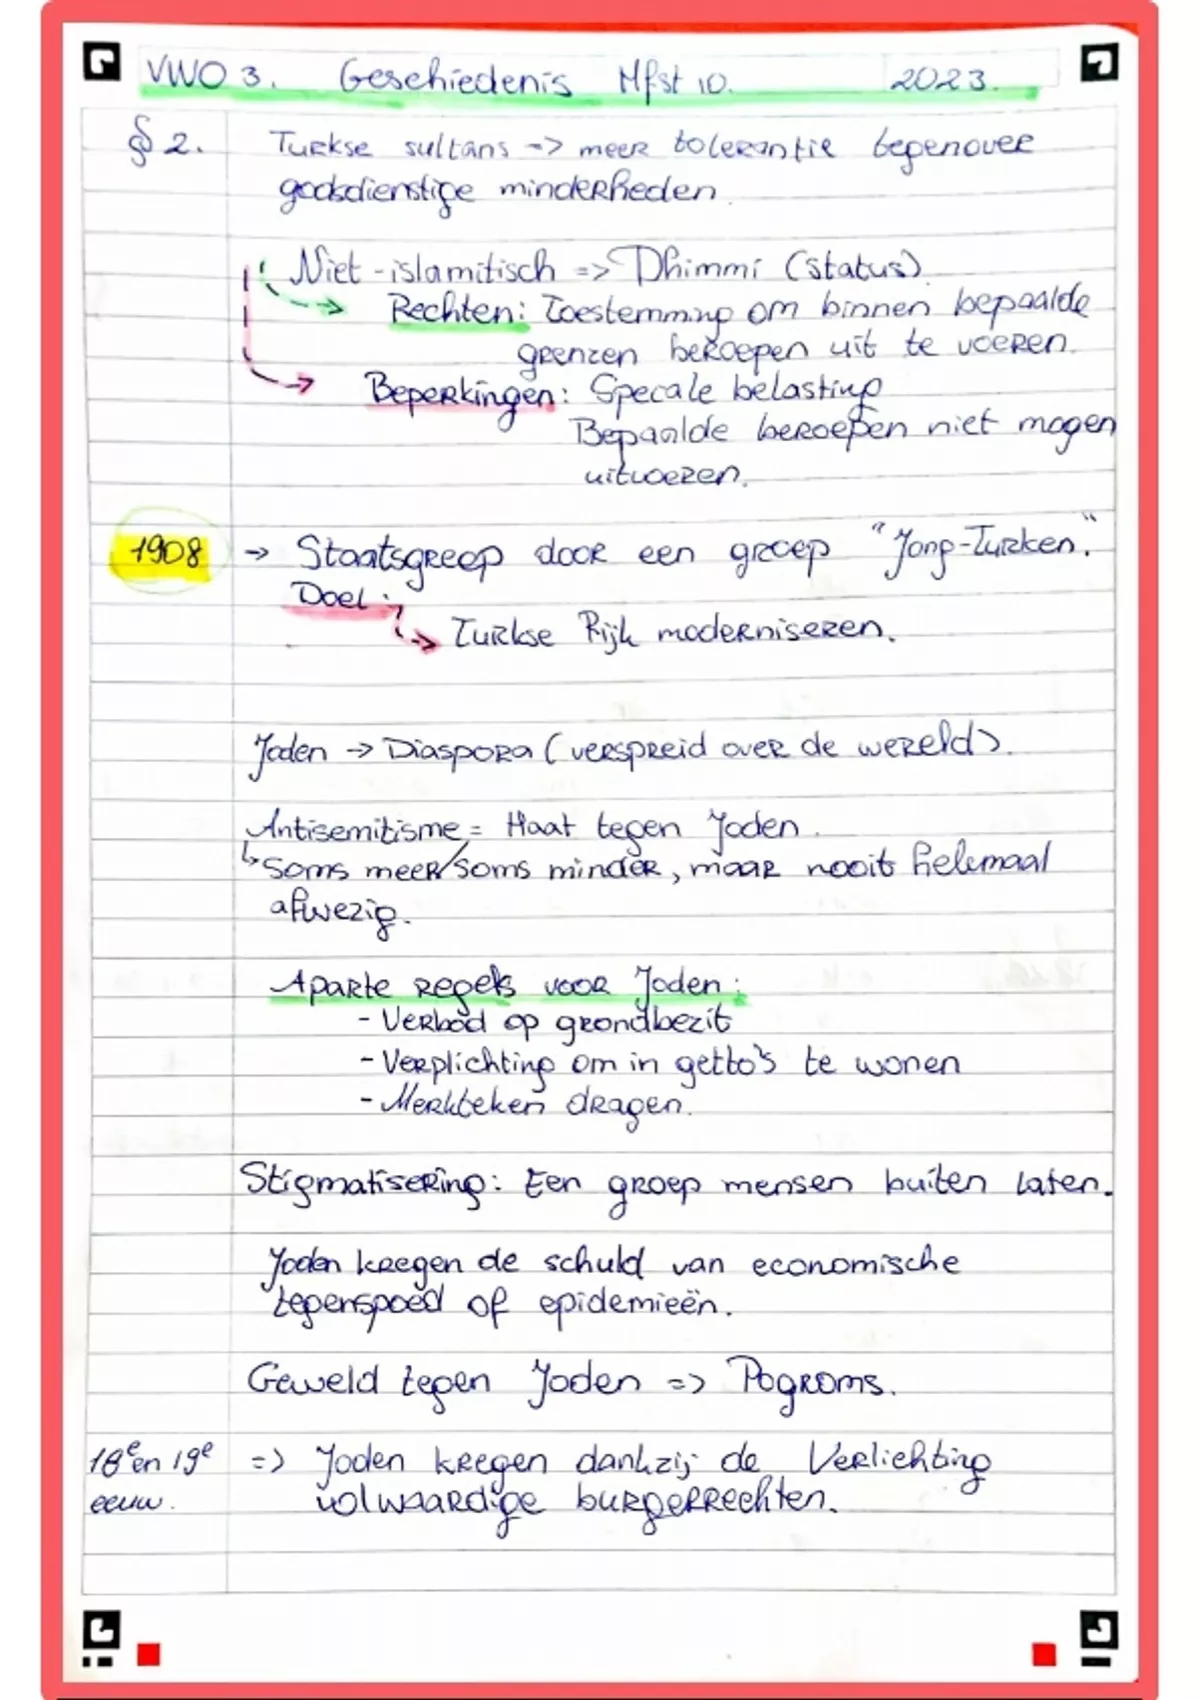 VWO 3. Geschiedenis Hfst 10. 2023.
§ 2. Turkse sultans -> meer tolerantie tegenover
godsdienstige minderheden.
Niet-islamitisch => Dhimmi (status)
Rechten: Toestemming om binnen bepaalde
grenzen beroepen uit te voeren.
Beperkingen: Specale belasting
Bepaalde beroepen niet mogen
uitvoeren.
1908 -> Staatsgreep door een groep "Jong-Turken."
Doel:
-> Turkse Rijk moderniseren.
Joden -> Diaspora (verspreid over de wereld).
Antisemitisme = Haat tegen Joden.
↳ Soms meer/soms minder, maar nooit helemaal
afwezig.
Aparte regels voor Joden:
- Verbod op grondbezit
- Verplichting om in getto's te wonen
- Merkteken dragen.
Stigmatisering: Een groep mensen buiten laten.
Joden kregen de schuld van economische
tegenspoed of epidemieën.
Geweld tegen Joden => Pogroms.
18e en 19e => Joden kregen dankzij de Verlichting
eeuw. volwaardige burgerrechten.